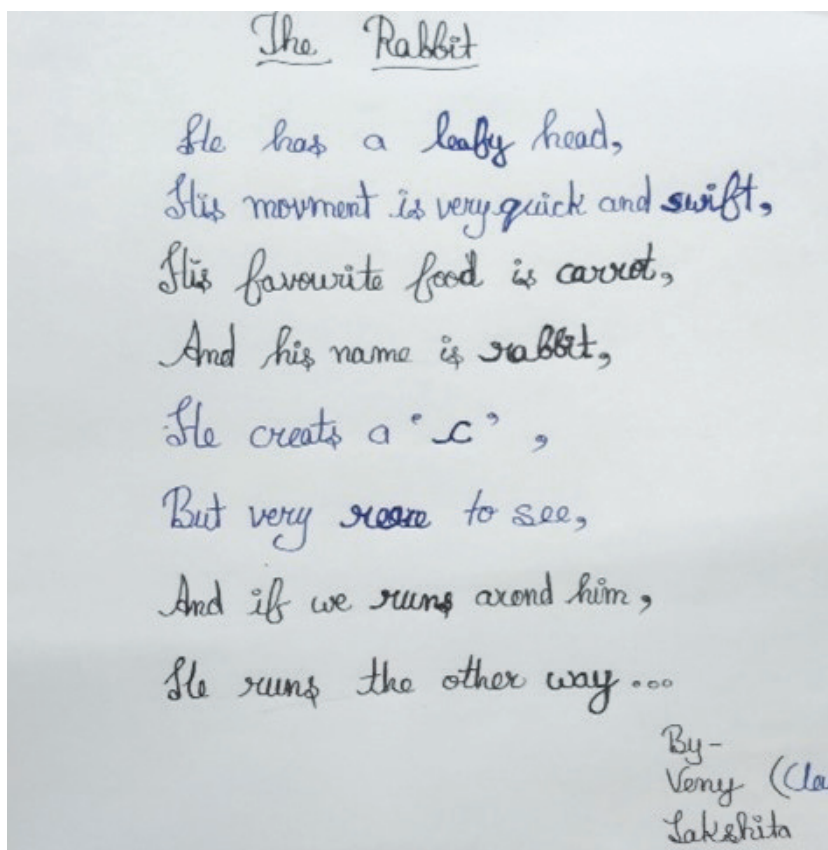 The Rabbit
He has a leafy head,
His movment is very quick and swift,
His favourite food is carrot,
And his name is rabbit,
He creats a 'c',
But very to see,
And if we runs arond him,
He runs the other way...
By-
Veny (Cla
Lakshita